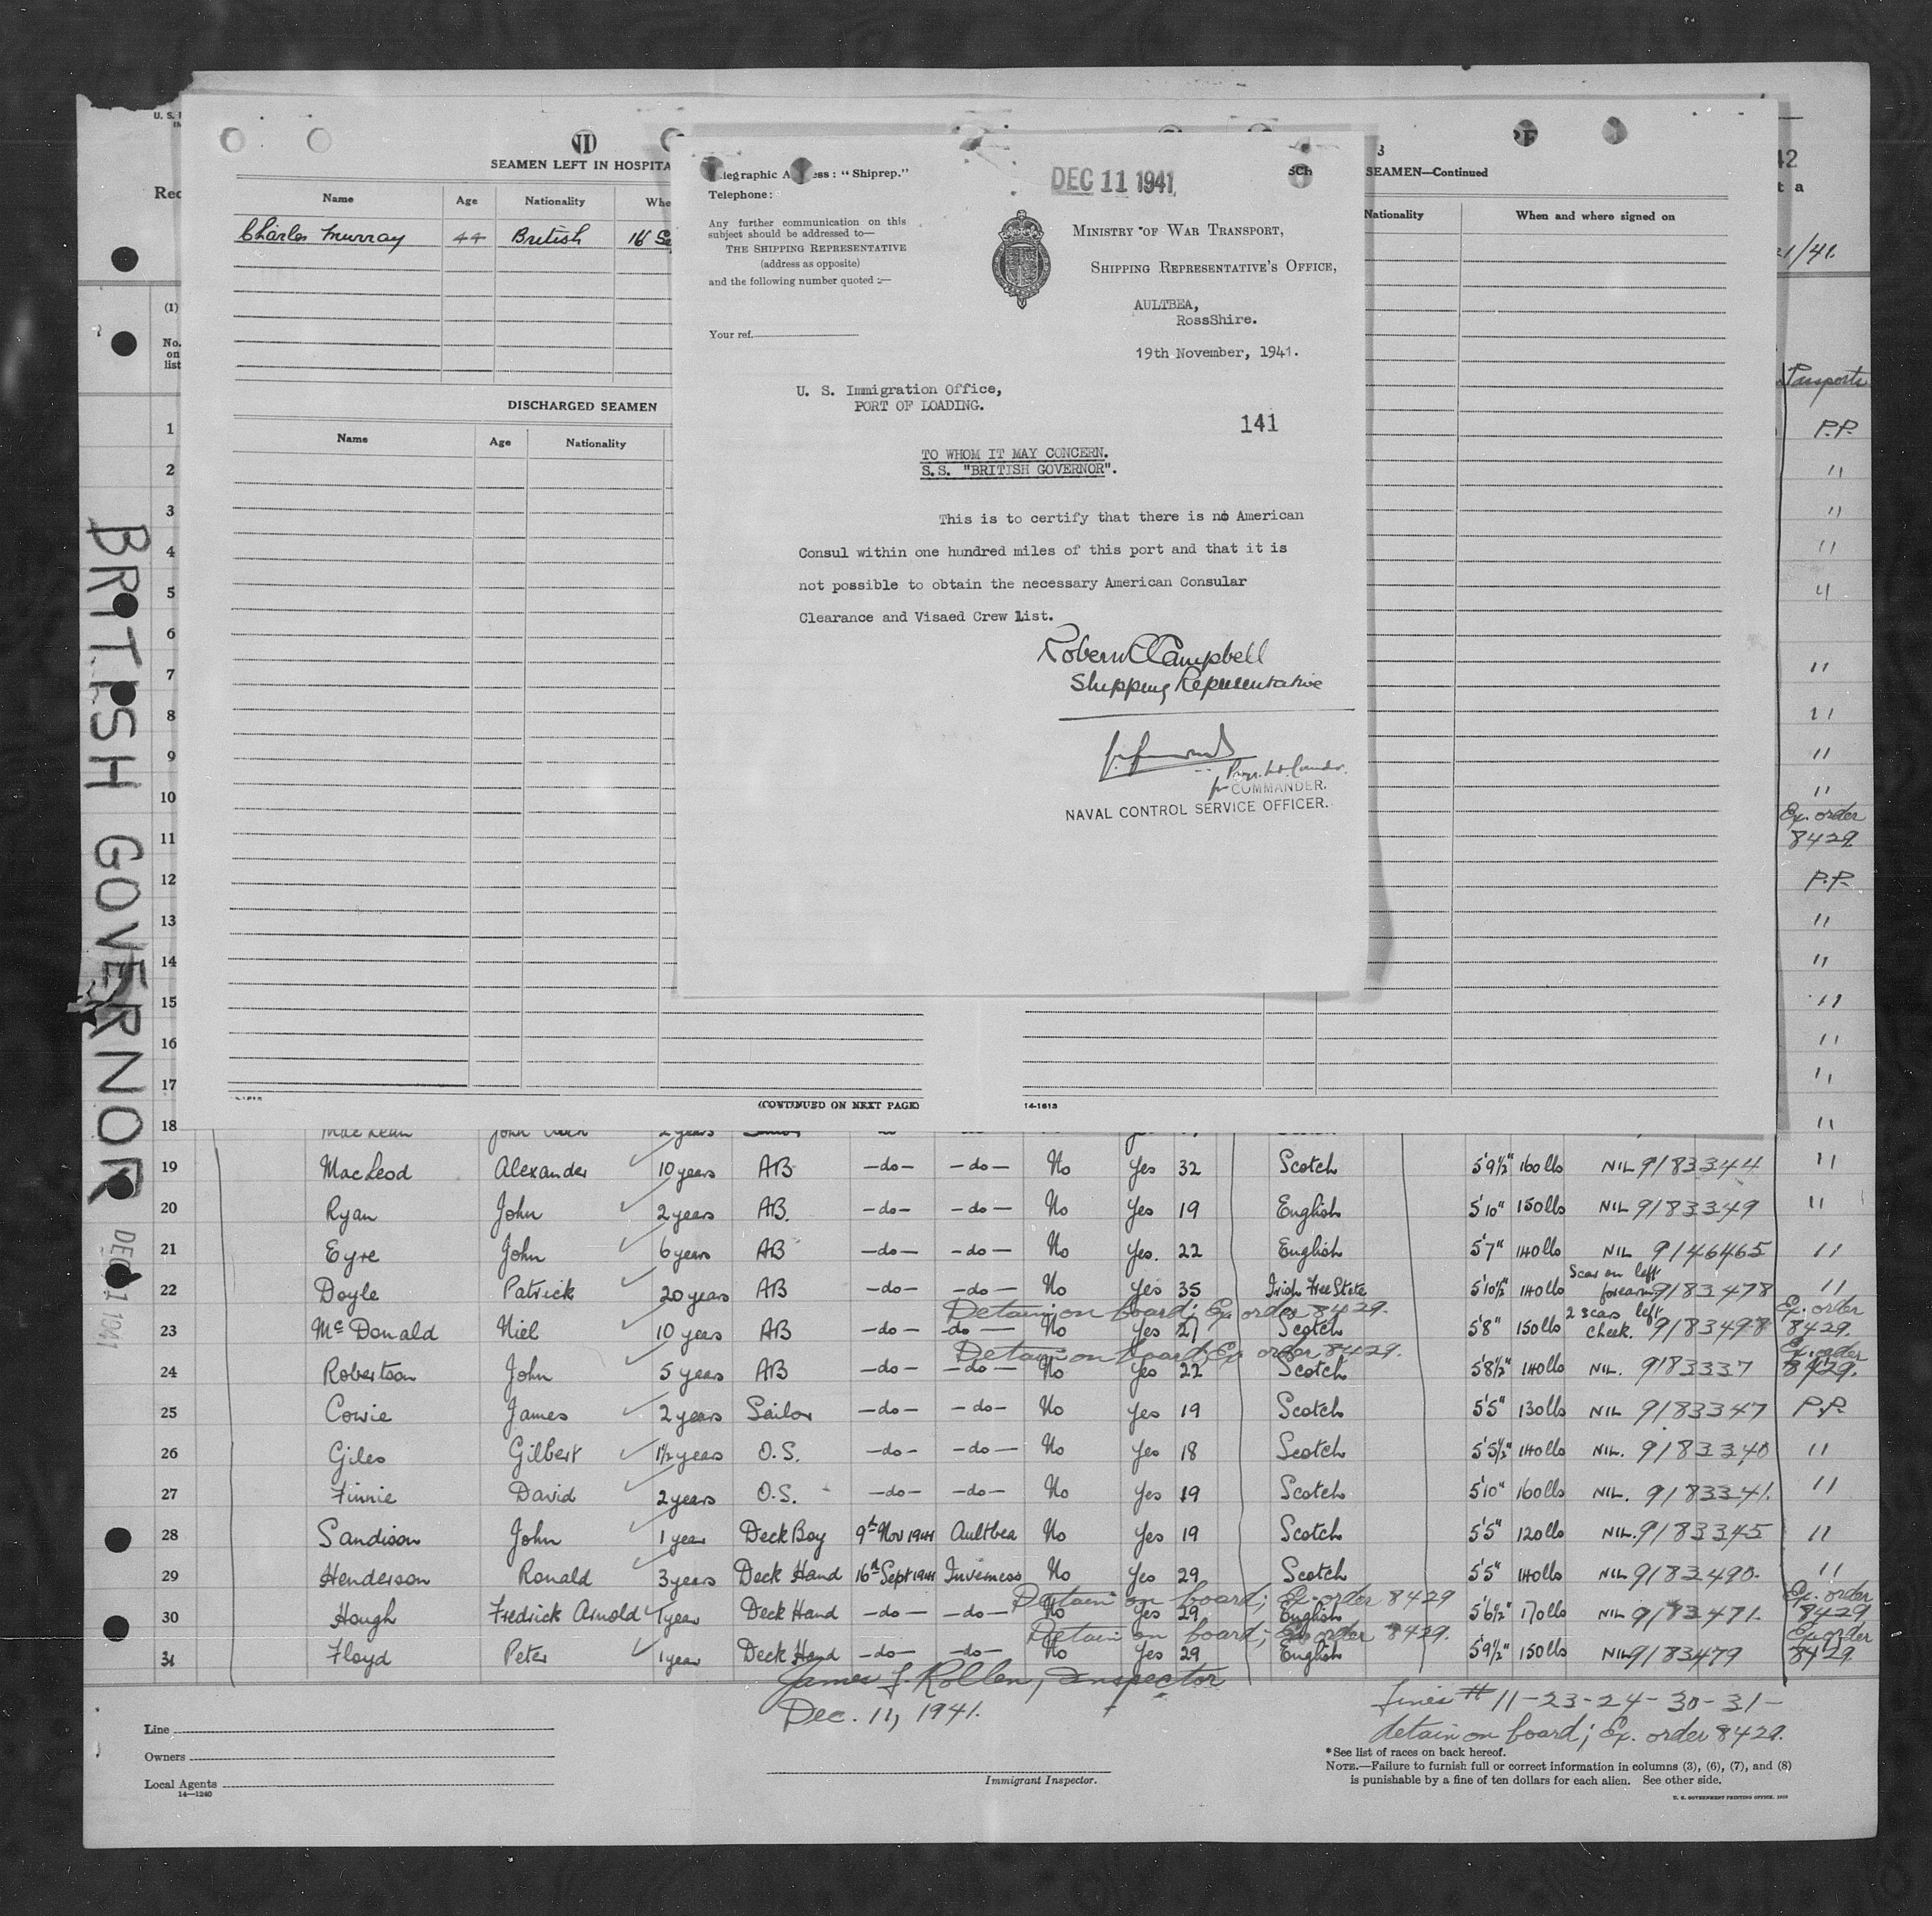 U. S.
Rec
(1)
No. on list
SEAMEN LEFT IN HOSPITA
Name Age Nationality Whe
Charles Murray 44 British 16 Se
DISCHARGED SEAMEN
Name Age Nationality
SEAMEN—Continued
Nationality When and where signed on
Telegraphic Address: "Shiprep."
Telephone:
Any further communication on this
subject should be addressed to—
THE SHIPPING REPRESENTATIVE
(address as opposite)
and the following number quoted :—
Your ref.
DEC 11 1941
MINISTRY OF WAR TRANSPORT,
SHIPPING REPRESENTATIVE'S OFFICE,
AULTBEA,
RossShire.
19th November, 1941.
U. S. Immigration Office,
PORT OF LOADING.
141
TO WHOM IT MAY CONCERN.
S.S. "BRITISH GOVERNOR".
This is to certify that there is no American
Consul within one hundred miles of this port and that it is
not possible to obtain the necessary American Consular
Clearance and Visaed Crew List.
Campbell
Shipping Representative
for COMMANDER.
NAVAL CONTROL SERVICE OFFICER.
42
t a
1/41
Passports
1 P.P.
2 "
3 "
4 "
5 "
6
7 "
8 "
9 "
10 "
11 Ex. order 8429
12 P.P.
13 "
14 "
15 "
16 "
17 "
(CONTINUED ON NEXT PAGE)
14-1613
BRITISH GOVERNOR
DEC 11 1941
18 MacLean John 2 years "
19 MacLeod Alexander 10 years AB —do— —do— No Yes 32 Scotch 5'9½" 160 lbs NIL 9183344 "
20 Ryan John 2 years AB. —do— —do— No Yes 19 English 5'10" 150 lbs NIL 9183349 "
21 Eyre John 6 years AB —do— —do— No Yes. 22 English 5'7" 140 lbs NIL 9146465 "
22 Doyle Patrick 20 years AB —do— —do— No Yes 35 Irish Free State 5'10½" 140 lbs Scar on left forearm 9183478 "
Detain on board; Ex. order 8429.
23 McDonald Niel 10 years AB —do— —do— No Yes 27 Scotch 5'8" 150 lbs 2 scars left cheek. 9183498 Ex. order 8429.
Detain on board; Ex. order 8429.
24 Robertson John 5 years AB —do— —do— No Yes 22 Scotch 5'8½" 140 lbs NIL. 9183337 Ex. order 8429.
25 Cowie James 2 years Sailor —do— —do— No Yes 19 Scotch 5'5" 130 lbs NIL 9183347 P.P.
26 Giles Gilbert 1½ years O.S. —do— —do— No Yes 18 Scotch 5'5½" 140 lbs NIL. 9183340 "
27 Finnie David 2 years O.S. —do— —do— No Yes 19 Scotch 5'10" 160 lbs NIL. 9183341. "
28 Sandison John 1 year Deck Boy 9th Nov 1941 Aultbea No Yes 19 Scotch 5'5" 120 lbs NIL. 9183345 "
29 Henderson Ronald 3 years Deck Hand 16th Sept 1941 Inverness No Yes 29 Scotch 5'5" 140 lbs NIL 9183490. "
Detain on board; Ex. order 8429
30 Hough Fredrick Arnold 1 year Deck Hand —do— —do— No Yes 29 English 5'6½" 170 lbs NIL 9183471. Ex. order 8429
Detain on board; Ex order 8429.
31 Floyd Peter 1 year Deck Hand —do— —do— No Yes 29 English 5'9½" 150 lbs NIL 9183479 Ex order 8429
James J. Rollen, Inspector
Dec. 11, 1941.
Immigrant Inspector.
Line
Owners
Local Agents
14—1240
Lines # 11-23-24-30-31-
detain on board; Ex. order 8429.
*See list of races on back hereof.
NOTE.—Failure to furnish full or correct information in columns (3), (6), (7), and (8)
is punishable by a fine of ten dollars for each alien. See other side.
U. S. GOVERNMENT PRINTING OFFICE